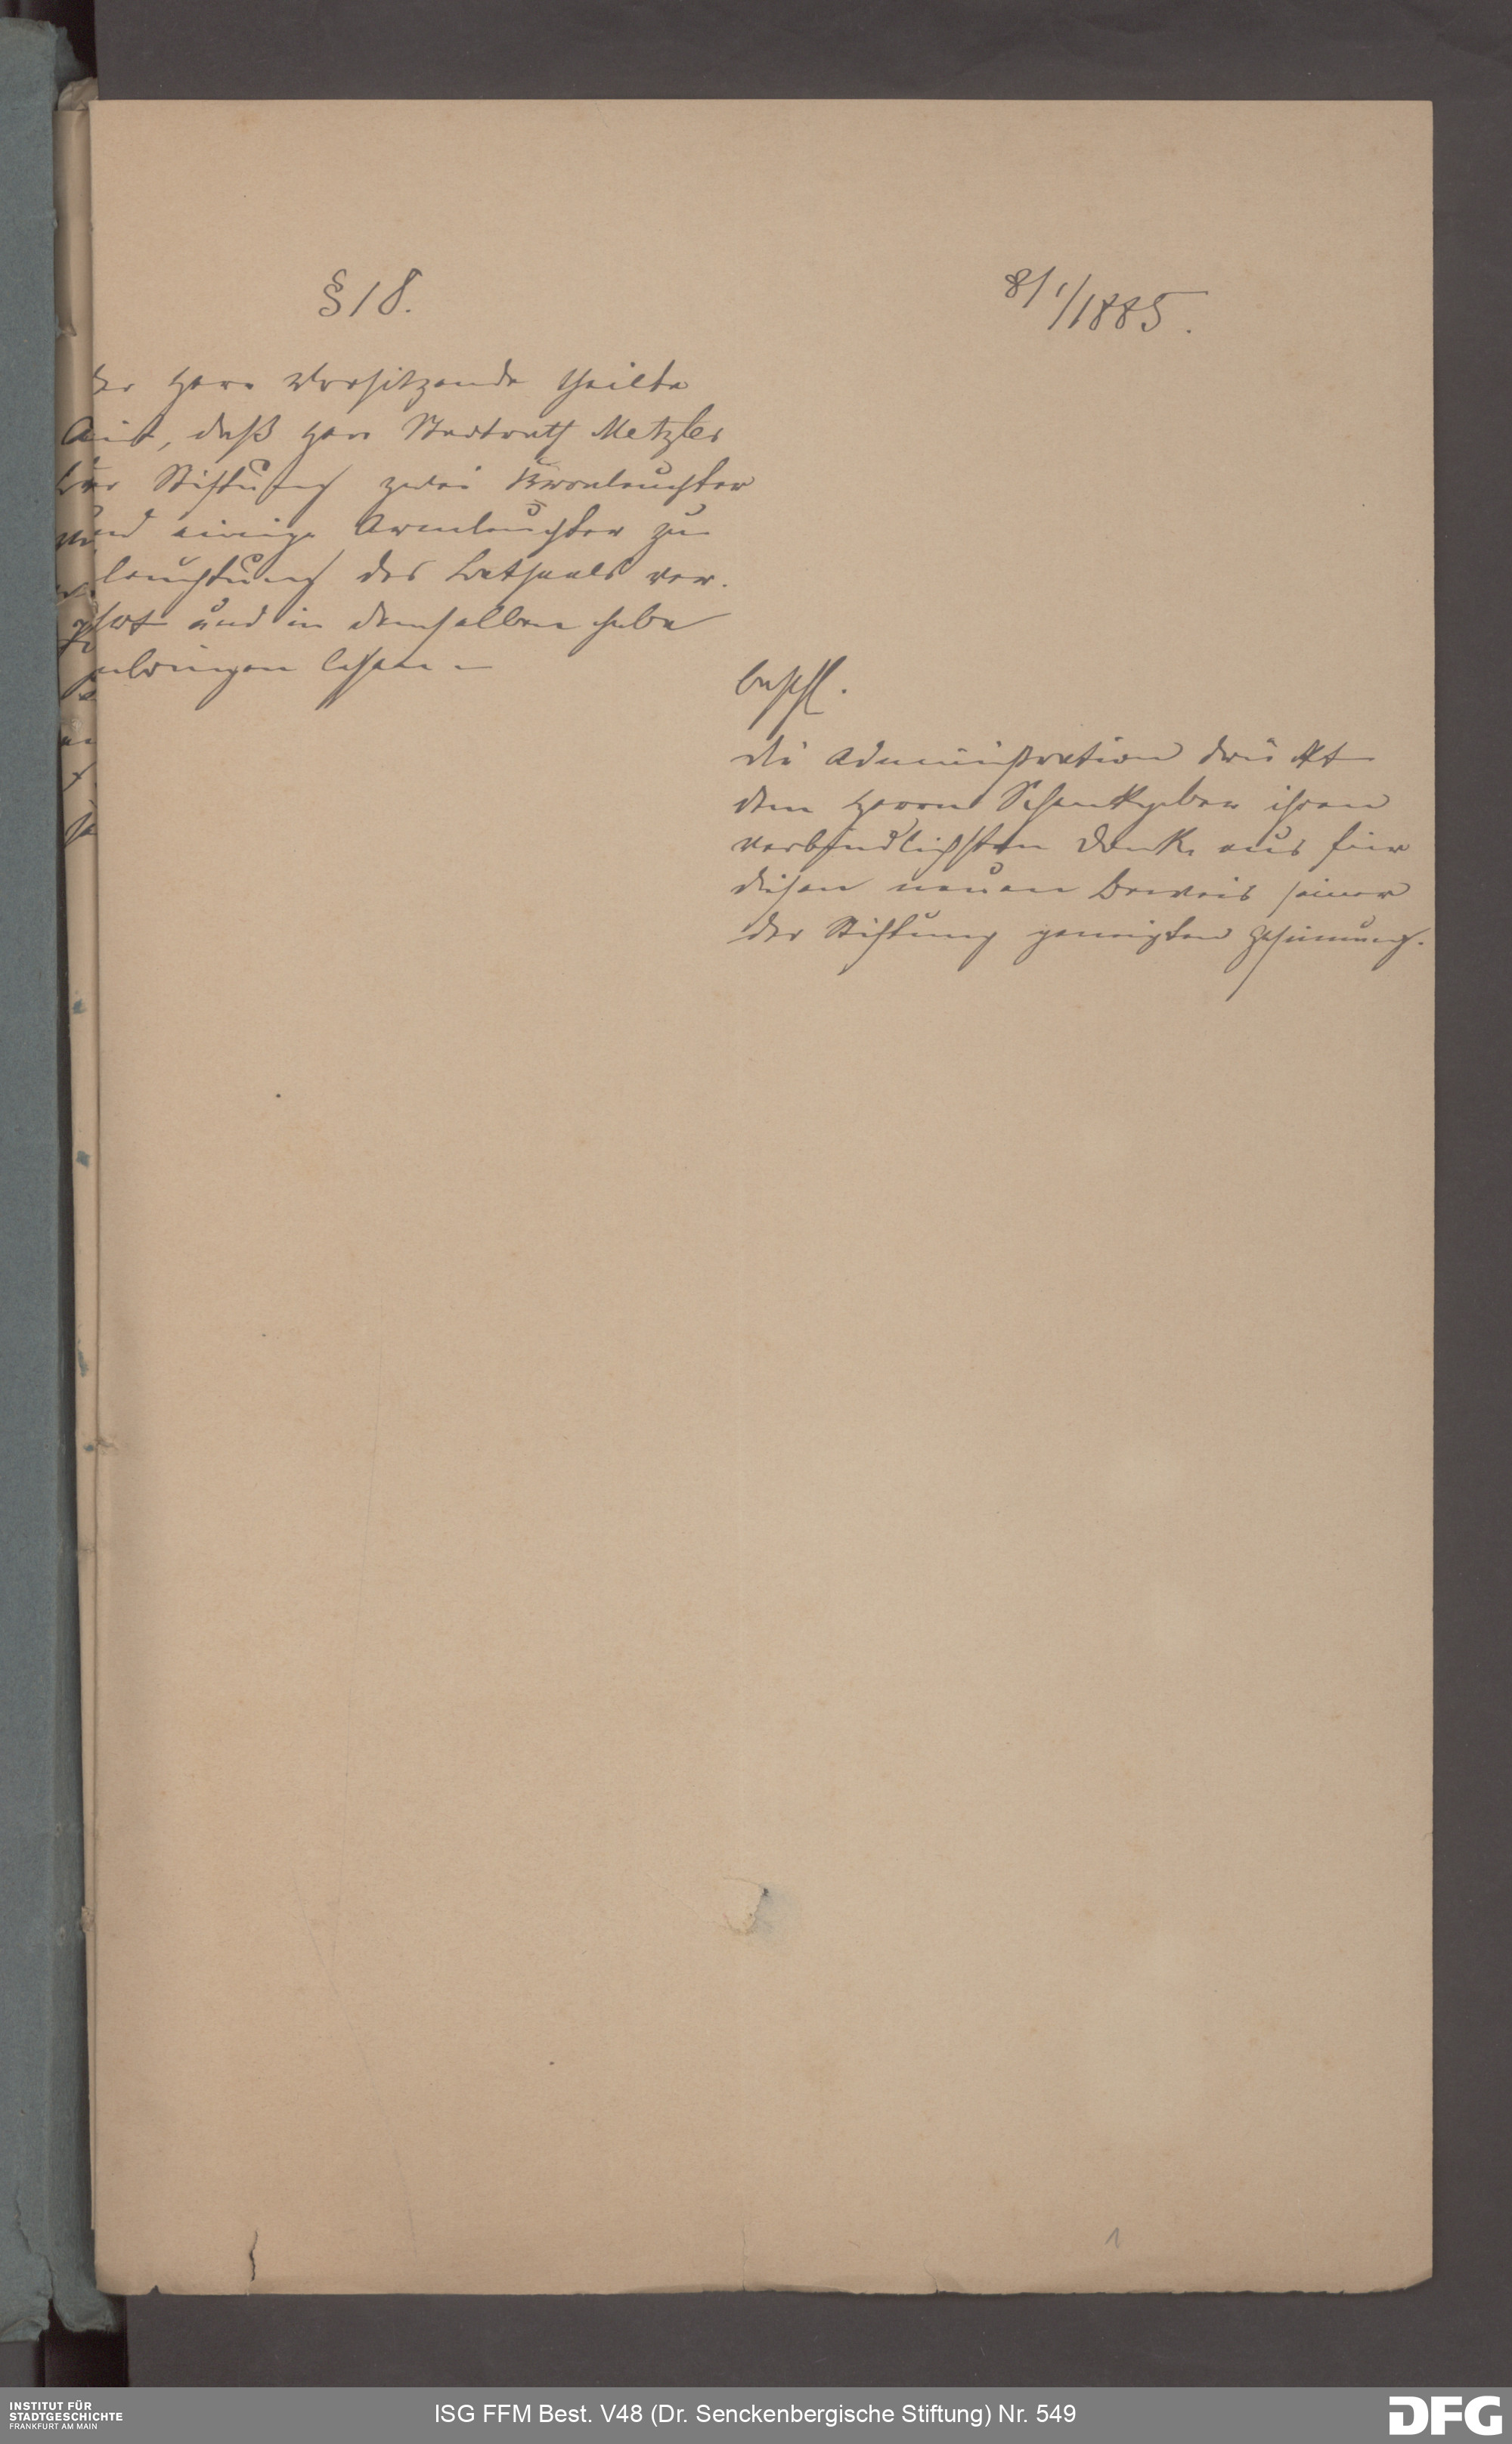 § 18.
8/1/1885.
Der Herr Vorsitzende theilte
mit, daß Herr Stadtrath Metzler
der Stiftung zwei Kronleuchter
und einige Armleuchter zu
leuchtung des Betsaals ver-
und in demselben habe
anbringen lassen –
beschl.
die Administration drückt
dem Herrn Schenkgeber ihren
verbindlichsten Dank aus für
diesen neuen Beweis seiner
der Stiftung geneigten Gesinnung.
1
INSTITUT FÜR
STADTGESCHICHTE
FRANKFURT AM MAIN
ISG FFM Best. V48 (Dr. Senckenbergische Stiftung) Nr. 549
DFG